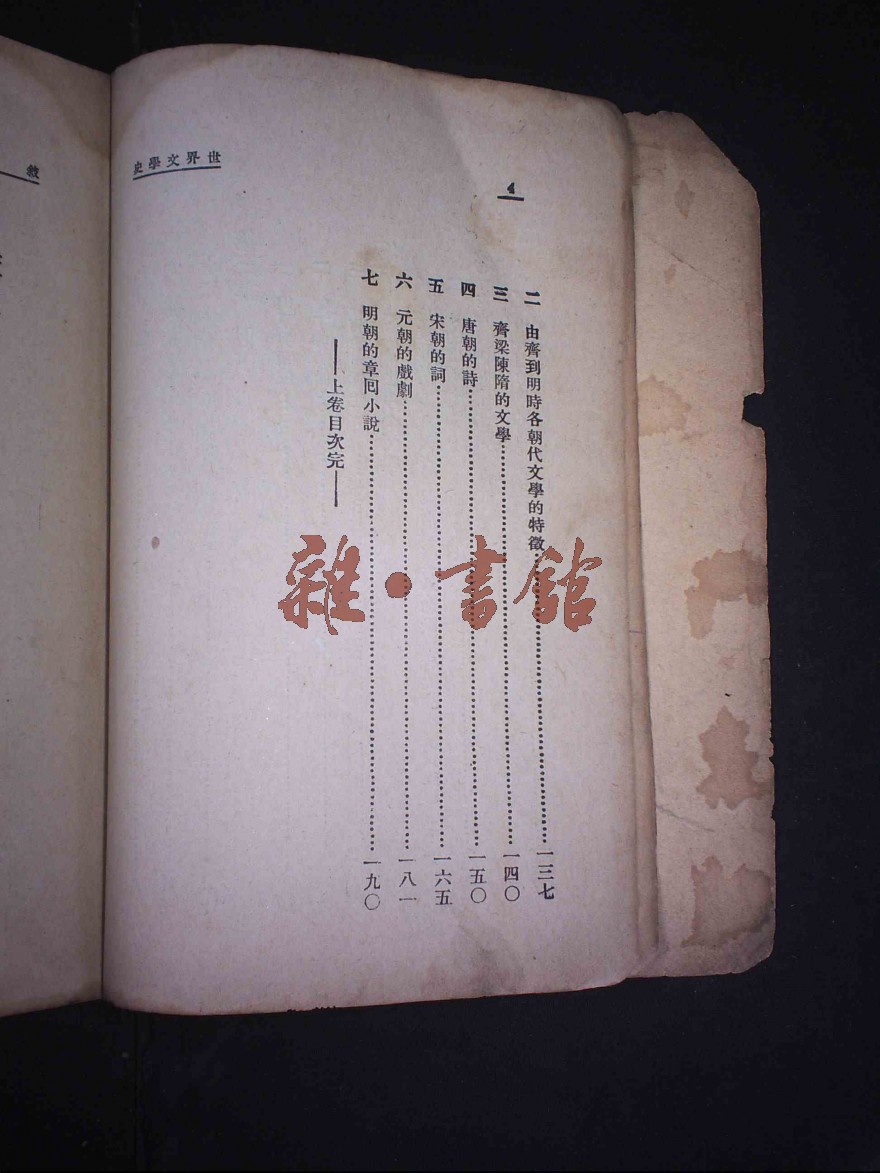 世界文學史
4
二 由齊到明時各朝代文學的特徵……一三七
三 齊梁陳隋的文學……一四〇
四 唐朝的詩……一五〇
五 宋朝的詞……一六五
六 元朝的戲劇……一八一
七 明朝的章回小說……一九〇
——上卷目次完——
敘
雜·書館